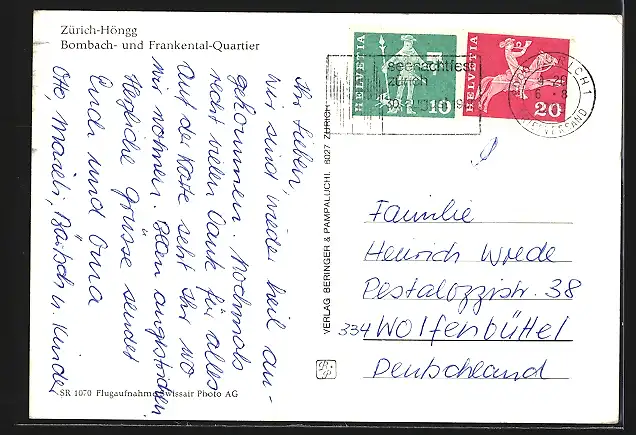 Zürich-Höngg
Bombach- und Frankental-Quartier
Ihr Lieben,
wir sind wieder heil an-
gekommen. Nochmals
recht vielen Dank für alles
Auf der Karte seht Ihr wo
wir wohnen. Blau angestrichen.
Herzliche Grüsse sendet
Euch und Oma
Otto, Maieli, und Kinder
SR 1070 Flugaufnahme Swissair Photo AG
VERLAG BERINGER & PAMPALUCHI, 8027 ZÜRICH
seenachtfest
zürich
HELVETIA
10
HELVETIA
20
ZÜRICH 1
BRIEFVERSAND
Familie
Heinrich Wrede
Pestalozzistr. 38
334 Wolfenbüttel
Deutschland